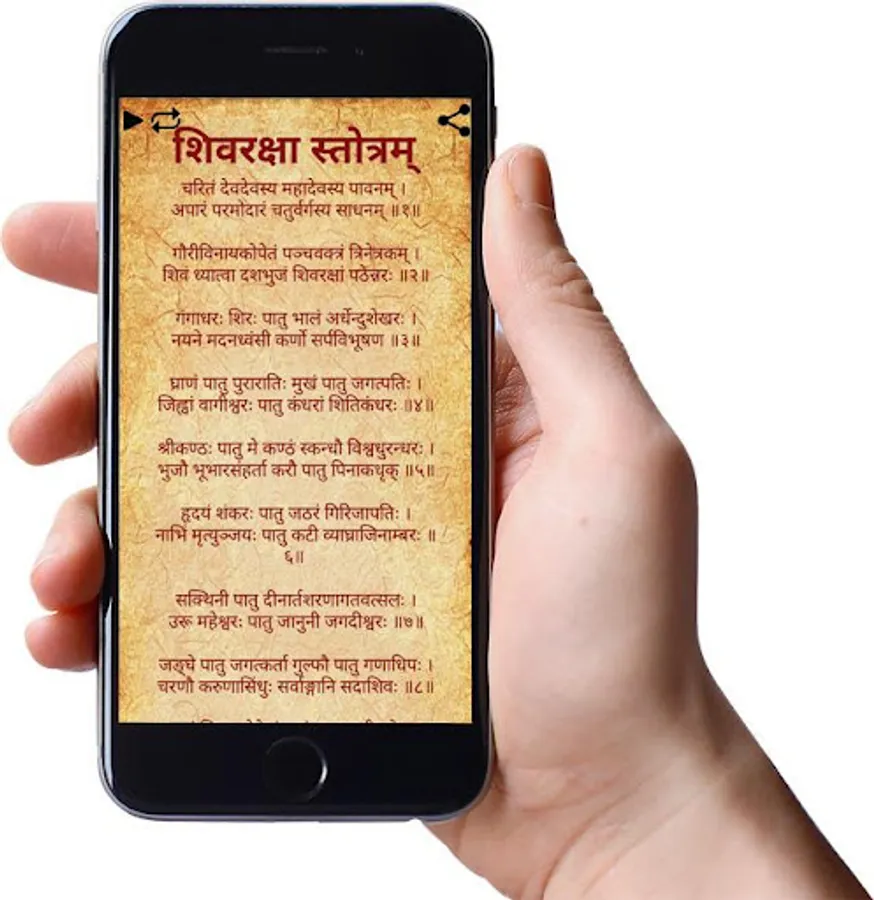 शिवरक्षा स्तोत्रम्
चरितं देवदेवस्य महादेवस्य पावनम् ।
अपारं परमोदारं चतुर्वर्गस्य साधनम् ॥१॥
गौरीविनायकोपेतं पञ्चवक्त्रं त्रिनेत्रकम् ।
शिवं ध्यात्वा दशभुजं शिवरक्षां पठेन्नरः ॥२॥
गंगाधरः शिरः पातु भालं अर्धेन्दुशेखरः ।
नयने मदनध्वंसी कर्णो सर्पविभूषण ॥३॥
घ्राणं पातु पुरारातिः मुखं पातु जगत्पतिः ।
जिह्वां वागीश्वरः पातु कंधरां शितिकंधरः ॥४॥
श्रीकण्ठः पातु मे कण्ठं स्कन्धौ विश्वधुरन्धरः ।
भुजौ भूभारसंहर्ता करौ पातु पिनाकधृक् ॥५॥
हृदयं शंकरः पातु जठरं गिरिजापतिः ।
नाभिं मृत्युञ्जयः पातु कटी व्याघ्राजिनाम्बरः ॥
६॥
सक्थिनी पातु दीनार्तशरणागतवत्सलः ।
उरू महेश्वरः पातु जानुनी जगदीश्वरः ॥७॥
जङ्घे पातु जगत्कर्ता गुल्फौ पातु गणाधिपः ।
चरणौ करुणासिंधुः सर्वाङ्गानि सदाशिवः ॥८॥